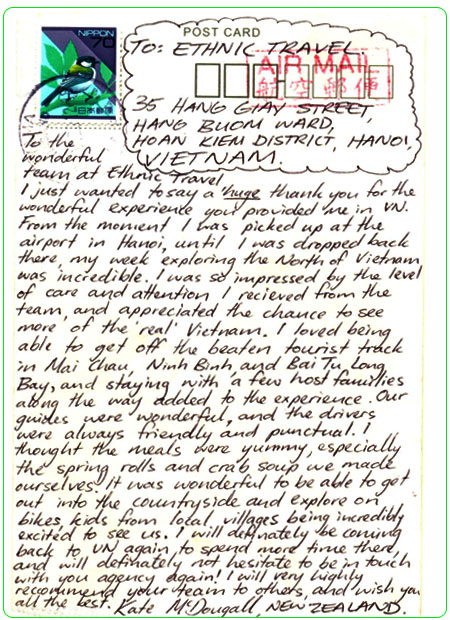 POST CARD
NIPPON
70
日本郵便
TO: ETHNIC TRAVEL.
AIR MAIL
航空郵便
35 HANG GIAY STREET,
HANG BUOM WARD,
HOAN KIEM DISTRICT, HANOI,
VIETNAM.
To the
wonderful
team at Ethnic Travel
I just wanted to say a 'huge' thank you for the
wonderful experience you provided me in VN.
From the moment I was picked up at the
airport in Hanoi, until I was dropped back
there, my week exploring the North of Vietnam
was incredible. I was so impressed by the level
of care and attention I recieved from the
team, and appreciated the chance to see
more of the 'real' Vietnam. I loved being
able to get off the beaten tourist track
in Mai Chau, Ninh Binh, and Bai Tu Long
Bay, and staying with a few host families
along the way added to the experience. Our
guides were wonderful, and the drivers
were always friendly and punctual. I
thought the meals were yummy, especially
the spring rolls and crab soup we made
ourselves. It was wonderful to be able to get
out into the countryside and explore on
bikes, kids from local villages being incredibly
excited to see us. I will definately be coming
back to VN again to spend more time there,
and will definately not hesitate to be in touch
with you agency again! I will very highly
recommend your team to others, and wish you
all the best. Kate McDougall, NEW ZEALAND.